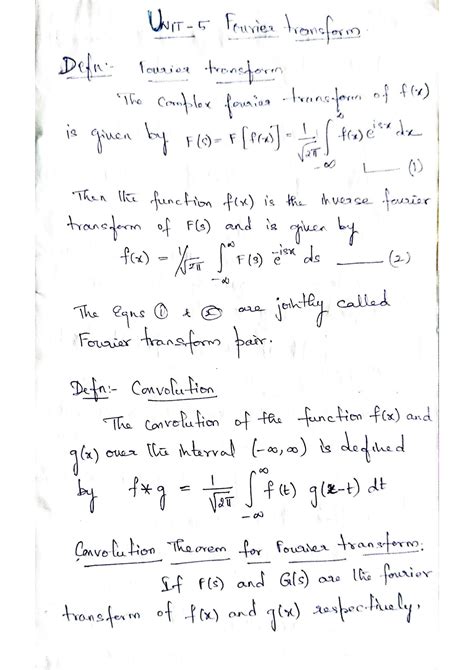 UNIT-5 Fourier transform
Defn:- Fourier transform
The complex fourier transform of f(x)
is given by F(s)=F[f(x)] = 1/√2π ∫_{-∞}^{∞} f(x) e^{isx} dx
(1)
Then the function f(x) is the inverse fourier
transform of F(s) and is given by
f(x) = 1/√2π ∫_{-∞}^{∞} F(s) e^{-isx} ds —— (2)
The Eqns ① & ② are jointly called
Fourier transform pair.
Defn:- Convolution
The convolution of the function f(x) and
g(x) over the interval (-∞,∞) is defined
by f*g = 1/√2π ∫_{-∞}^{∞} f(t) g(x-t) dt
Convolution Theorem for Fourier transform:
If F(s) and G(s) are the fourier
transform of f(x) and g(x) respectively.